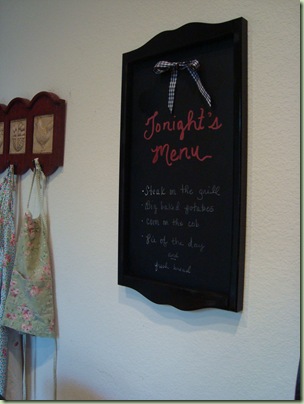 Tonight's
Menu
• Steak on the grill
• Big baked potatoes
• corn on the cob
• Pie of the day
and
fresh bread